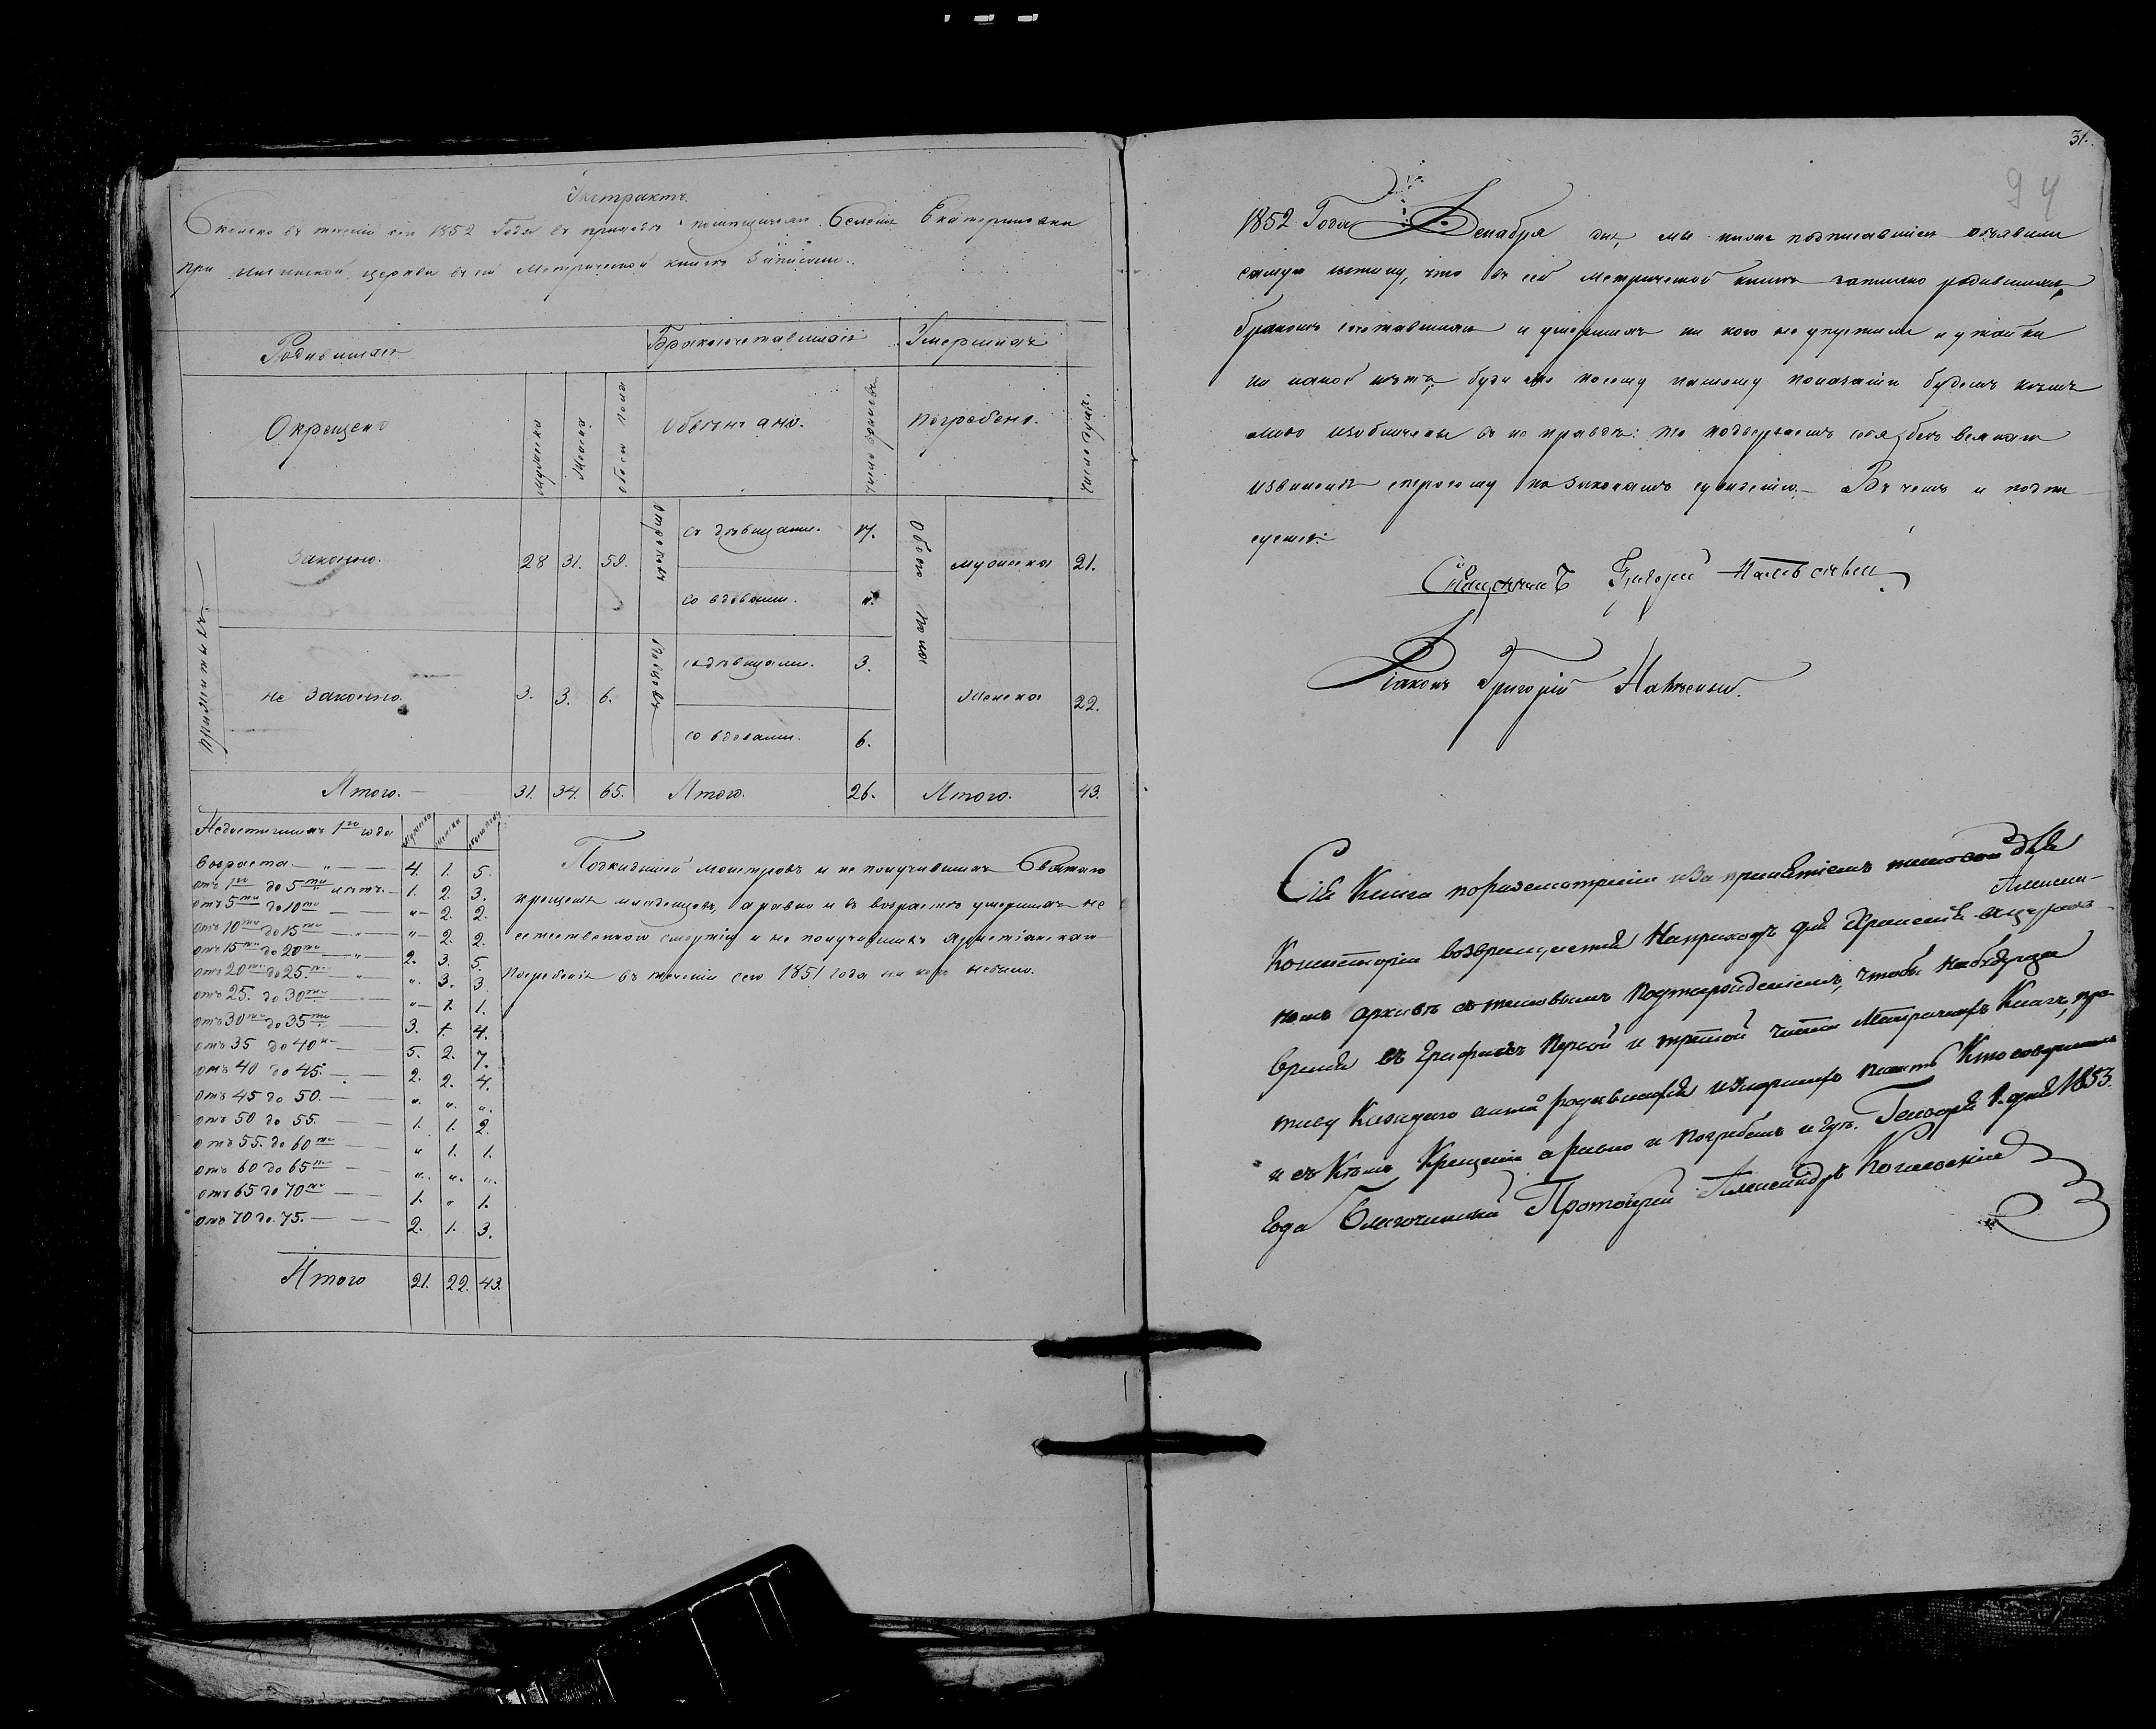 Экстрактъ.
Сколько въ теченіи сего 1852 Года въ приходѣ селенія Екатериновки
при церкви въ сей Метрической книгѣ Записано.
Родившихся
Бракосочетавшихся
Умершихъ
Окрещено
Мужеска
Женска
обоего пола
Обвѣнчано.
число браковъ
погребено.
число душъ.
Законно.
28 31. 59.
Отроковъ
съ дѣвицами. 17.
со вдовами. „
Обоего пола
мужеска 21.
не Законно.
3. 3. 6.
Вдовцовъ
съ дѣвицами. 3.
со вдовами. 6.
Женска 22.
Итого. 31. 34. 65. Итого. 26. Итого. 43.
Недостигшихъ 1го года Мужеска женска обоего пола
возраста — „ — 4. 1. 5.
отъ 1го до 5ти лѣтъ. 1. 2. 3.
отъ 5ти до 10ти „ 2. 2.
отъ 10ти до 15ти „ 2. 2.
отъ 15ти до 20ти 2. 3. 5.
отъ 20ти до 25ти „ 3. 3.
отъ 25. до 30ти „ 1. 1.
отъ 30ти до 35ти 3. 1. 4.
отъ 35 до 40 5. 2. 7.
отъ 40 до 45. 2. 2. 4.
отъ 45 до 50. „ „ „
отъ 50 до 55. 1. 1. 2.
отъ 55. до 60ти „ 1. 1.
отъ 60 до 65ти „ „ „
отъ 65 до 70ти 1. „ 1.
отъ 70 до 75. 2. 1. 3.
Итого 21. 22. 43.
монстровъ и не получившихъ Святаго
крещенія младенцовъ, а равно и въ возрастѣ умершихъ не
естественною смертію и не получившихъ христіанскаго
погребенія въ теченіи сего 1851 года ни кого небыло.
31.
94
1852 Года Декабря дня, мы ниже подписавшіеся объявили
самую истину, что въ сей метрической книгѣ записано родившихся,
бракомъ сочетавшихся и умершихъ ни кого не упустили и утайки
ни какой нѣтъ, буде же посему нашему показанію будемъ кѣмъ
либо изобличены въ не правдѣ: то подвергаемъ себя безъ всякаго
извиненія строгому по законамъ сужденію. — Въ чемъ и подпи
суемся:
Священникъ Григорій
Діаконъ Григорій
Сія Книга по разсмотреніи и за принятіемъ таковой для
Консисторіи возвращается На приходъ для храненія въ церков-
номъ архивѣ съ таковымъ подтвержденіемъ, чтобы на будущее
время въ графахъ первой и третей части Метрическихъ Книгъ, про-
тиву Каждаго родившихся и умершихъ Кто совершалъ
и съ Кѣмъ Крещеніе а равно и погребеніе Генваря 1. дня 1853.
Года Благочинный Протоіерей Александръ